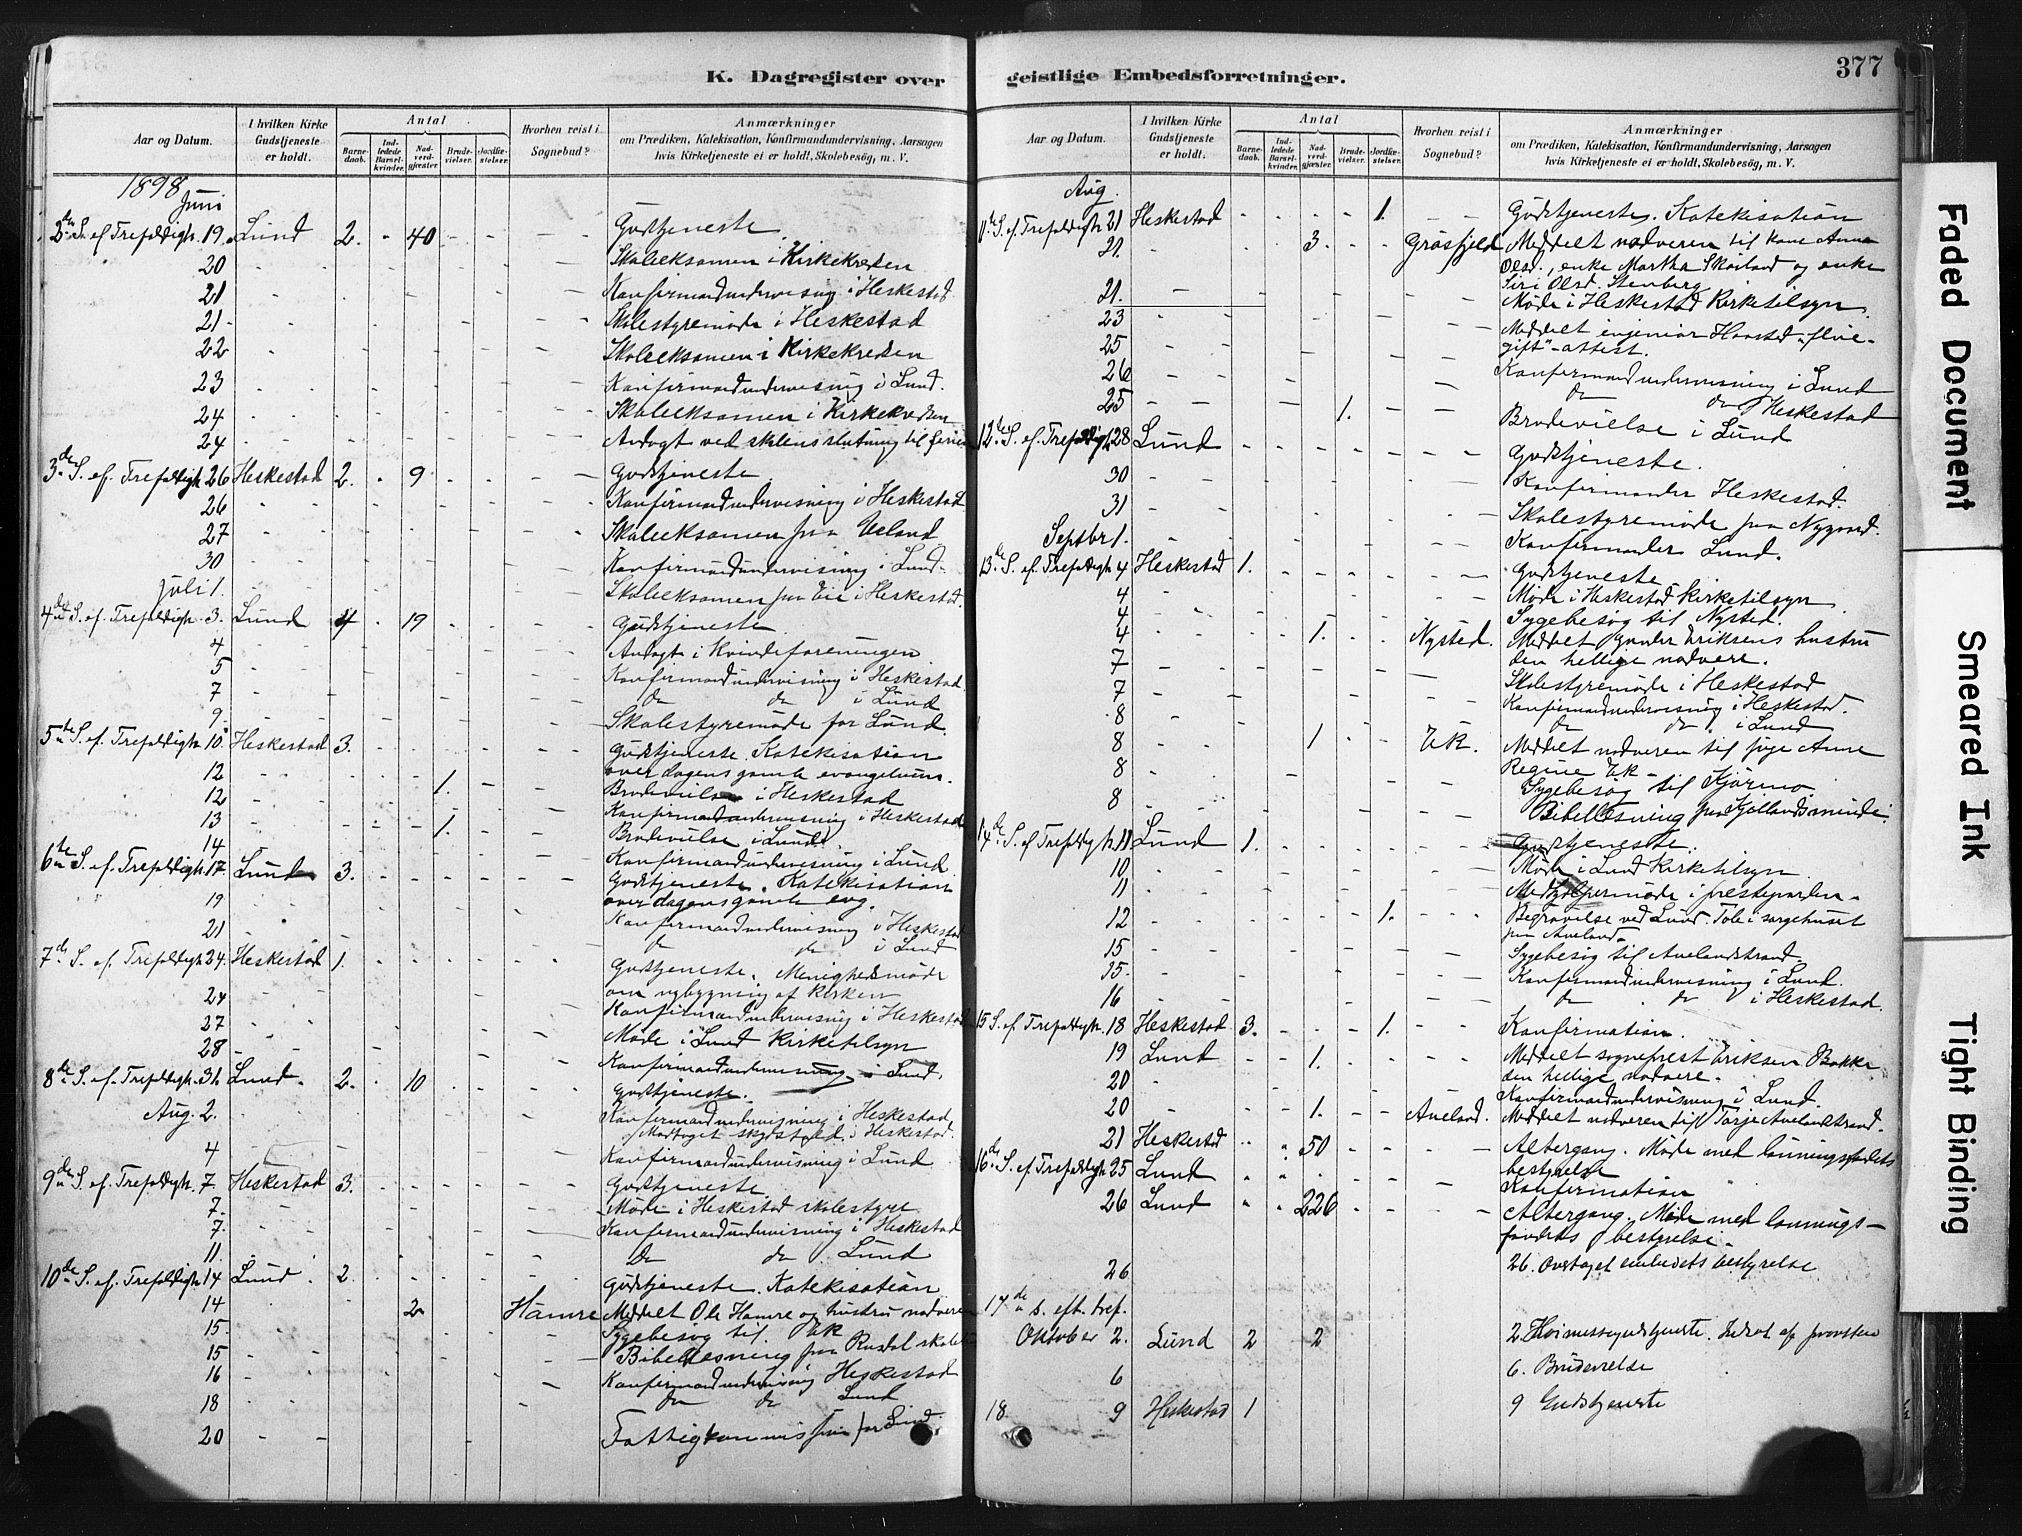 K. Dagregister over
Aar og Datum.
I hvilken Kirke Gudstjeneste er holdt.
Antal
Barnedaab.
Indledede Barselkvinder.
Nadverdgjæster.
Brudevielser.
Jordfæstelser.
Hvorhen reist i Sognebud?
Anmærkninger
om Prædiken, Katekisation, Konfirmandundervisning, Aarsagen
hvis Kirketjeneste ei er holdt, Skolebesög, m. V.
1898 Juni
2den S. ef. Trefoldigh. 19. Lund 2. - 40 - - - Gudstjeneste
20 Skoleeksamen i Kirkekredsen
21 Konfirmandundervisning i Heskestad
21 Skolestyremøde i Heskestad
22 Skoleeksamen i Kirkekredsen
23 Konfirmandundervisning i Lund.
24 Skoleeksamen i Kirkekredsen
24 Andagt ved skolens slutning til ferien
3de S. ef. Trefoldigh. 26 Heskestad 2. - 9 - - - Gudstjeneste
26 Konfirmandundervisning i Heskestad
27 Skoleeksamen paa Veland
30 Konfirmandundervisning i Lund
Juli 1. Skoleeksamen paa Eie i Heskestad.
4de S. ef. Trefoldigh. 3. Lund 4 - 19 - - - Gudstjeneste
4 Andagt i Kvindeforeningen
5 Konfirmandundervisning i Heskestad
7 do do i Lund
9 Skolestyremøde for Lund
5te S. ef. Trefoldigh 10. Heskestad 3. Gudstjeneste. Katekisation
over dagens gamle evangelium.
12 1. Brudevielse i Heskestad
12 Konfirmandundervisning i Heskestad
13 1. Brudevielse i Lund
14 Konfirmandundervisning i Lund
6te S. ef. Trefoldigh 17. Lund 3. Gudstjeneste. Katekisation
over dagens gamle evg.
19 Konfirmandundervisning i Heskestad
21 do do i Lund
7de S. ef. Trefoldigh 24. Heskestad 1. Gudstjeneste. Menighedsmøde
om nybygning af kirken
24 Konfirmandundervisning i Heskestad
27 Møde i Lund Kirketilsyn
28 Konfirmandundervisning i Lund
8de S. ef. Trefoldigh. 31. Lund. 2. - 10 Gudstjeneste.
Aug. 2. Konfirmandundervisning i Heskestad
Modtaget skydsfolk i Heskestad.
4 Konfirmandundervisning i Lund
9de S. ef. Trefoldigh. 7. Heskestad 3. Gudstjeneste.
7. Møde i Heskestad skolestyre
7. Konfirmandundervisning i Heskestad
11. Do do Lund
10de S. ef. Trefoldigh 14 Lund 2. Gudstjeneste. Katekisation
14 2 Hamre Meddelt Ole Hamre og hustru nadveren
15. Sygebesøg til Eik
15 Bibellesning paa Rusdal skole
16 Konfirmandundervisning Heskestad
18 do do Lund
20 Fattigkommission for Lund.
geistlige Embedsforretninger.
377
Aar og Datum.
I hvilken Kirke Gudstjeneste er holdt.
Antal
Barnedaab.
Indledede Barselkvinder.
Nadverdgjæster.
Brudevielser.
Jordfæstelser.
Hvorhen reist i Sognebud?
Anmærkninger
om Prædiken, Katekisation, Konfirmandundervisning, Aarsagen
hvis Kirketjeneste ei er holdt, Skolebesög, m. V.
Aug.
11te S. ef. Trefoldigh 21 Heskestad - - - - 1. - - Gudstjeneste. Katekisation
21. 3. Gråsfjeld Meddelt nadveren til kone Anna
Olsd., enke Martha Skårland og enke
Siri Olsd. Stenberg
21. Møde i Heskestad Kirketilsyn
23 Meddelt enjeniør Haasted "flue-
gift"-attest.
25 Konfirmandundervisning i Lund
26 do do Heskestad
25 1. Brudevielse i Lund
12te S. ef. Trefoldigh 28 Lund Gudstjeneste.
30 Konfirmander Heskestad.
31 Skolestyremøde paa Nygaard.
Septbr 1. Konfirmander Lund.
13de S. ef. Trefoldigh 4 Heskestad 1. Gudstjeneste
4 Møde i Heskestad Kirketilsyn
4 Sygebesøg til Nysted.
4 1. Nysted. Meddelt Gunder Eriksens hustru
den hellige nadvere.
7 Skolestyremøde i Heskestad
7 Konfirmandundervisning i Heskestad.
8 do do i Lund
8 1 Eik. Meddelt nadveren til pige Anne
Regine Eik
8 Sygebesøg til Kjørmo
8 Bibellesning paa Kjellandsminde.
14de S. ef Trefoldigh 11 Lund 1. Gudstjeneste.
10 Møde i Lund Kirketilsyn
11 Medhjelpermøde i prestegaarden
12 1. Begravelse ved Lund. Tale i sørgehuset
paa Aveland
15 Sygebesøg til Avelandstrand
15. Konfirmandundervisning i Lund.
16 do do i Heskestad.
15 S. ef. Trefoldigh. 18 Heskestad 3. - - - 1. - - Konfirmation
19 Lund 1. Meddelt sogneprest Eriksen Bakke
den hellige nadvere.
20 Konfirmandundervisning i Lund
20 1. Aveland. Meddelt nadveren til Tarje Avelandstrand.
21 Heskestad 50 Altergang. Møde med lønningsfondets
bestyrelse
16de S. ef Trefoldigh 25 Lund Konfirmation
26 Lund 226 Altergang. Møde med lønnings-
fondets bestyrelse.
26 26. Overtaget embedets bestyrelse
17de s. eft. tref.
Oktober 2. Lund 2 2 2. Høimessegudstjeneste. af provsten
6 6. Brudevielse
18 9 Heskestad 1 9 Gudstjeneste
Faded Document
Smeared Ink
Tight Binding